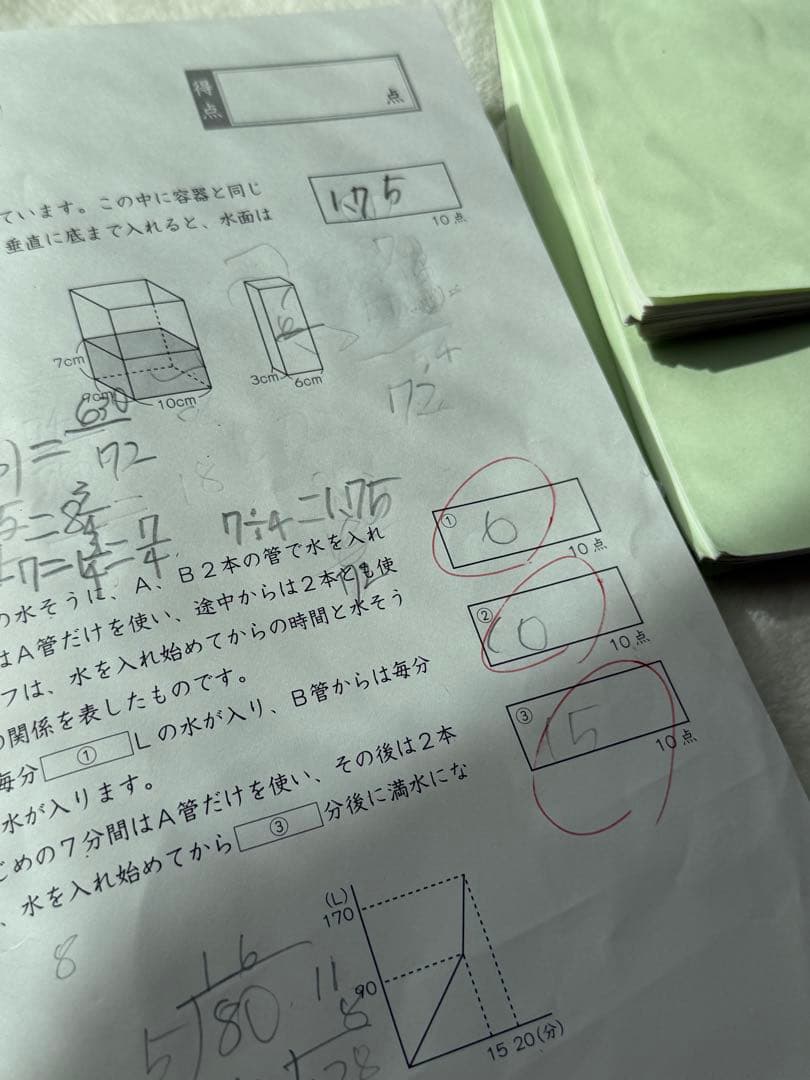 得点
点
ています。この中に容器と同じ
1.75
10点
垂直に底まで入れると、水面は
7cm
9cm
10cm
3cm 6cm
72
)=630/72
5=8 3/4
-7=1 3/4=7/4
7÷4=1.75
① 6
10点
の水そうに、A、B2本の管で水を入れ
はA管だけを使い、途中からは2本とも使
② 10
10点
フは、水を入れ始めてからの時間と水そう
の関係を表したものです。
③ 15
10点
毎分 ① Lの水が入り、B管からは毎分
水が入ります。
じめの7分間はA管だけを使い、その後は2本
、水を入れ始めてから ③ 分後に満水にな
(L)
170
90
15 20(分)
8
16
5)80
11
8